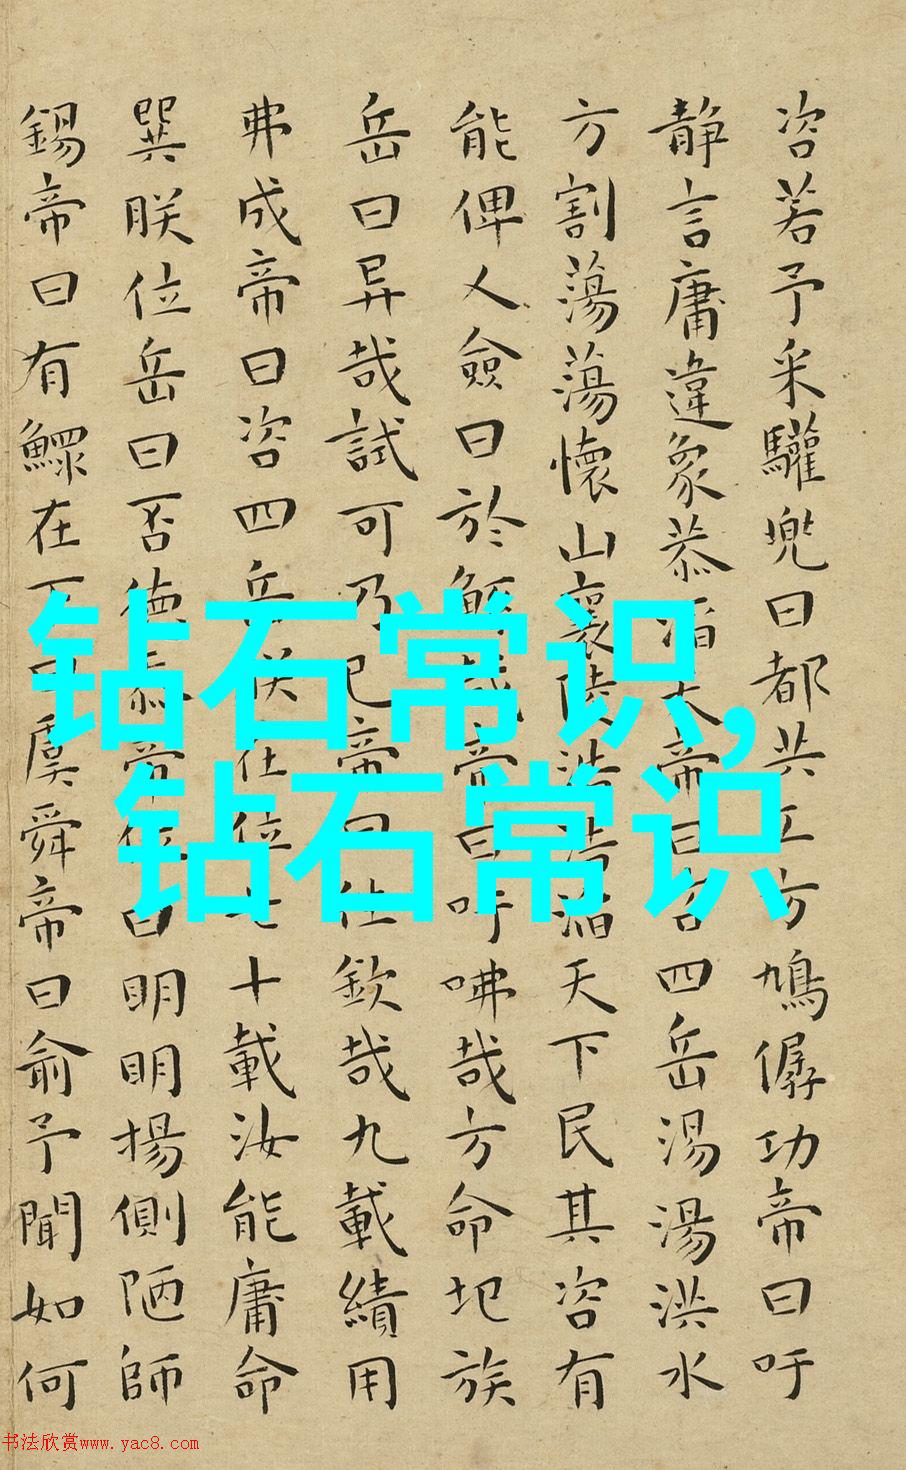 咨若予采驩兜曰都共工方鳩僝功帝曰吁
静言庸違象恭滔天帝曰咨四岳湯湯洪水
方割蕩蕩懷山襄陵浩浩滔天下民其咨有
能俾乂僉曰於鯀哉帝曰吁咈哉方命圮族
岳曰异哉試可乃已帝曰往欽哉九載績用
弗成帝曰咨四岳朕在位七十載汝能庸命
巽朕位岳曰否德忝帝位曰明明揚側陋師
錫帝曰有鰥在下曰虞舜帝曰俞予聞如何
钻石常识,
钻石常识
书法欣赏www.yac8.com